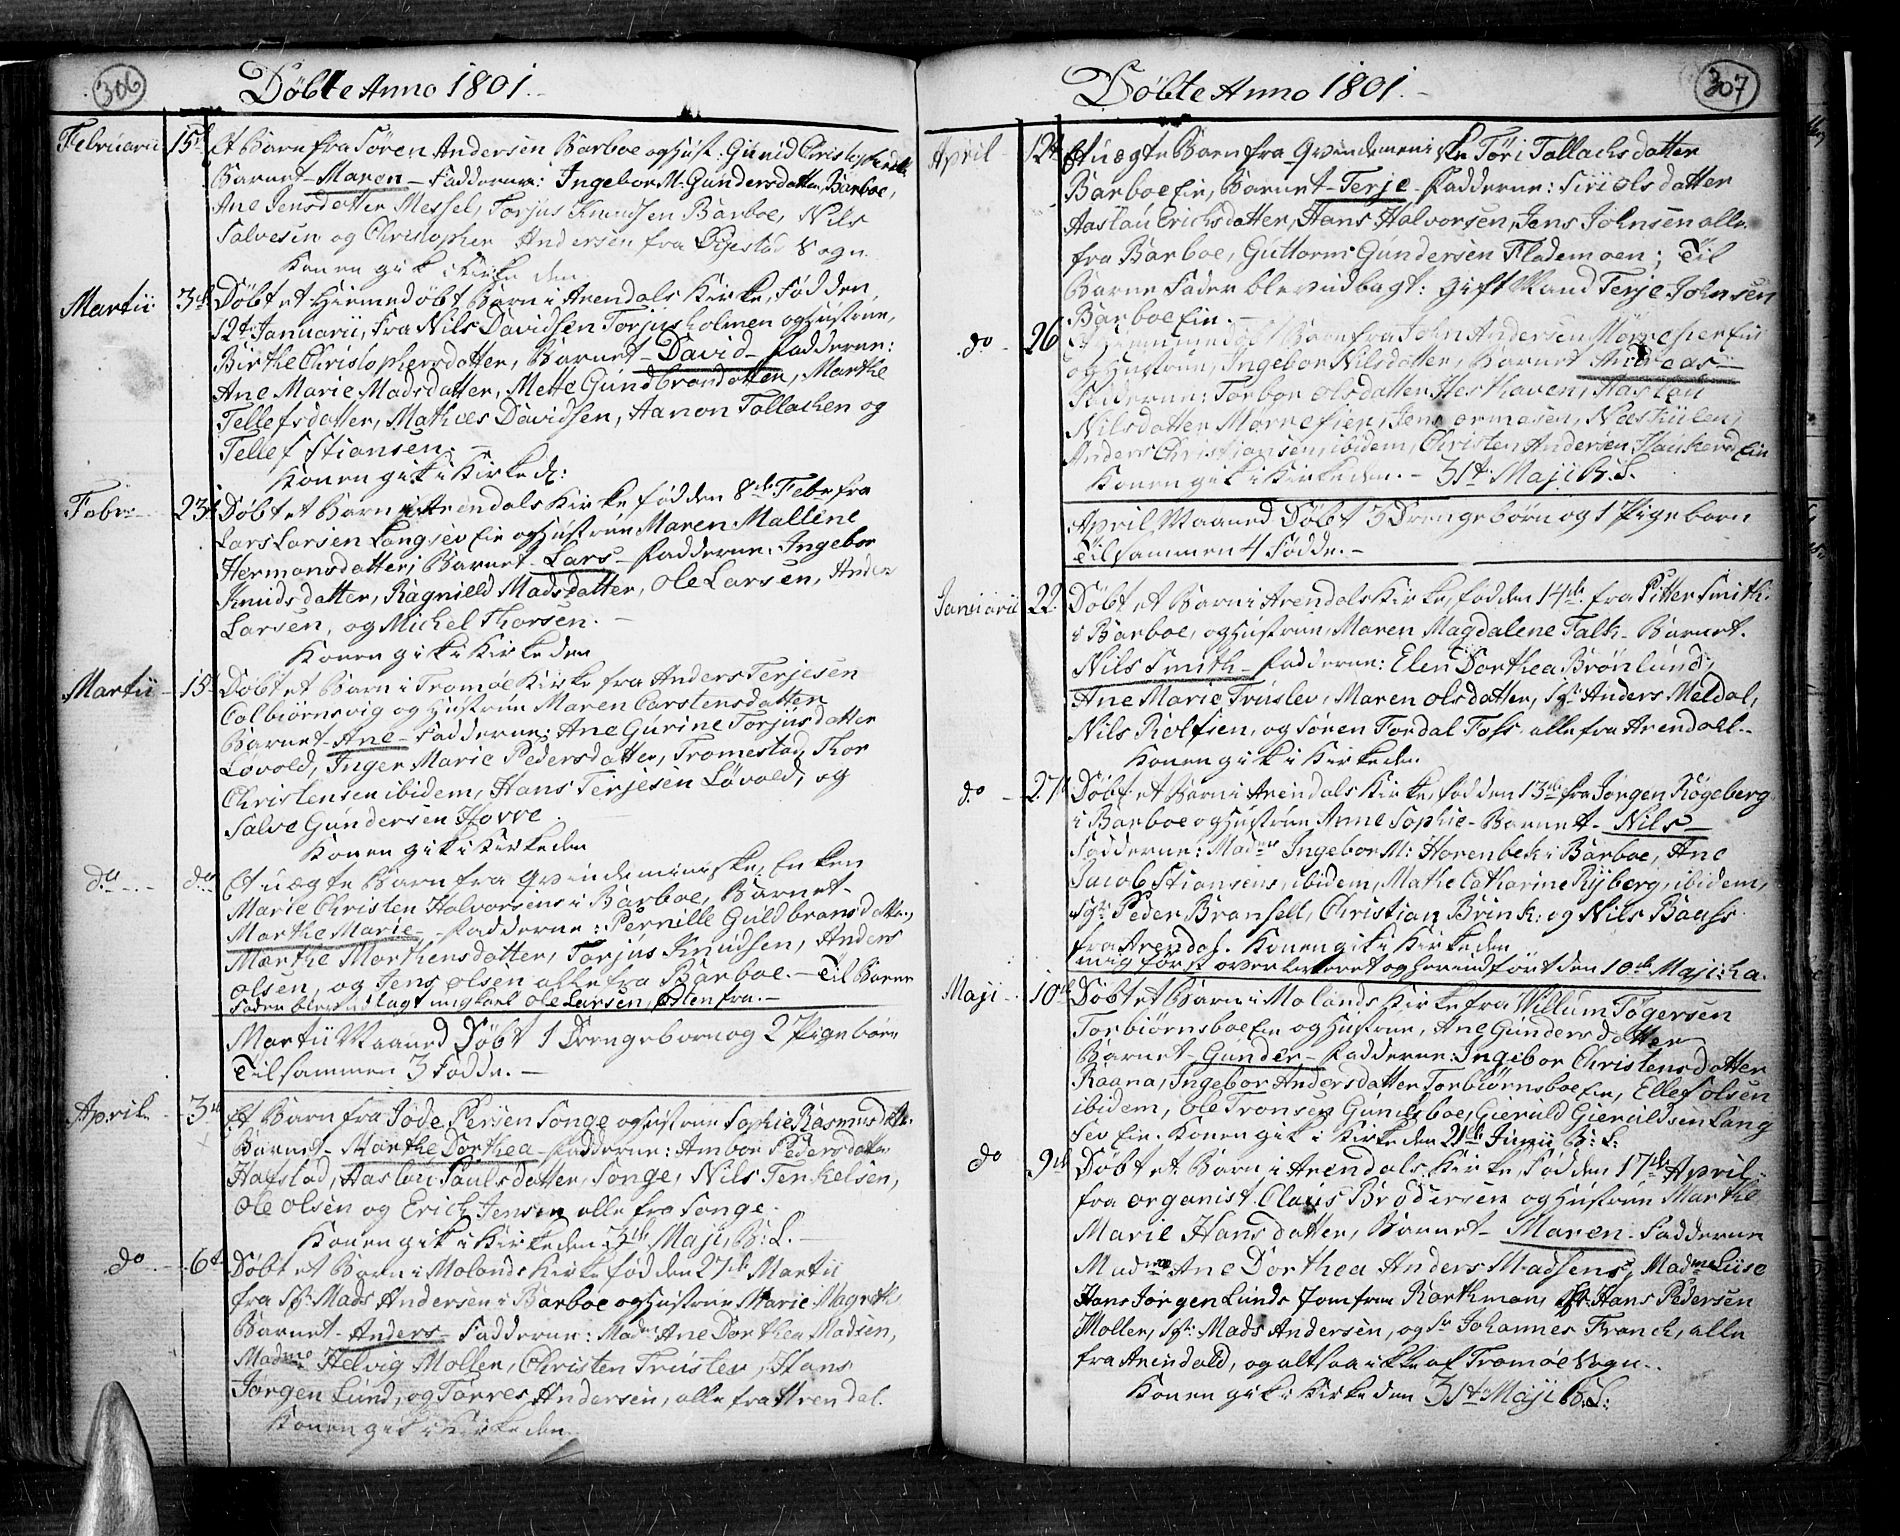 306
Döbte Anno 1801.
Februarii 15d Et Barn fra Sören Andersen Barboe og Hust: Gunild Christophersdtr
Barnet - Maren - Fadderne: Ingebor M: Gundersdatter, Barboe,
Ane Jensdatter Messel, Torjus Knudsen Barboe, Nils
Salvesen og Christopher Andersen fra Öjestad Sogn
Konen gik i Kirke den
Martii 3de Döbt et Hiemedöbt Barn i Arendals Kirke, Född den
12te Januarii, fra Nils Davidsen Torjusholmen og Hustrue,
Birthe Christophersdatter, Barnet - David - Fadderne:
Ane Marie Madsdatter, Mette Gundbrandatter, Marthe
Tellefsdatter, Mathies Davidsen, Aanon Tallachsen og
Tellef Stiansen. -
Konen gik i Kirke d:
Febr: 23d Döbt et Barn i Arendals Kirke född den 8de Febr fra
Lars Larsen Langsev Eie og Hustrue Maren Mallene
Hermansdatter, Barnet - Lars - Fadderne: Ingebor
Knudsdatter, Ragnield Madsdatter, Ole Larsen, Anders
Larsen, og Michel Thorsen. -
Konen gik i Kirke den
Martii 15d Döbt et Barn i Tromöe Kirke fra Anders Terjesen
Colbiörnsvig og Hustrue Maren Carstensdatter
Barnet - Ane - Fadderne: Ane Gurine Torjusdatter
Lövold, Inger Marie Pedersdatter, Tromestad, Thor
Christensen ibidem, Hans Terjesen Lövold, og
Salve Gundersen Hovve.
Konen gik i Kirke den
do do Et uægte Barn fra Qvindemeniske, Enken
Marie Christen Halvorsens i Barboe, Barnet -
Marthe Marie - Fadderne: Pernille Guldbransdatter,
Marthe Mortensdatter, Torjus Knudsen, Anders
Olsen, og Jens Olsen alle fra Barboe. - Til Barne
Fader blev udlagt ungkarl Ole Larsen, fra. -
Martii Maaned Döbt 1 Drengebarn og 2 Pigebörn
Tilsammen 3 Födde. -
April 3d Et Barn fra Jöde Persen Songe og Hustrue Sophie Rasmusdtr.
Barnet - Marthe Dorthea - Fadderne: Ambor Pedersdatter
Hafstad, Aaslou Paulsdatter, Songe, Nils Terkelsen,
Ole Olsen og Erich Jensen alle fra Songe.
Konen gik i Kirke den 3de Maji, B: L. -
do 6te Döbt et Barn i Molands Kirke född den 27de Martii
fra Sr Mads Andersen i Barboe og Hustrue Marie Magreth
Barnet - Anders - Fadderne: Madme Ane Dorthea Madsen,
Madme Helvig Moller, Christen Truslev, Hans
Jörgen Lund, og Torres Andersen, alle fra Arendal.
Konen gik i Kirke den
307
Döbte Anno 1801.
April 12te Et uægte Barn fra Qvindemeniske Töri Tallachsdatter
Barboe Eie, Barnet - Terje - Fadderne: Siri Olsdatter
Aaslau Erichsdatter, Hans Halvorsen, Jens Johnsen alle
fra Barboe, Guttorm Gundersen Flademoen; Til
Barne Fader blev udlagt: gift Mand Terje Johnsen
Barboe Eie. -
do 26 Et Hiemmedöbt Barn fra John Andersen Mörrefier Eie
og Hustrue, Ingebor Nilsdatter, Barnet Andreas -
Fadderne: Torbor Olsdatter Hesthaven, Aaslau
Nilsdatter Mörrefier, Jens Ormasen, Næskiilen,
Anders Christiansen, ibidem, Christen Andersen Eie
Konen gik i Kirke den. - 31te Maji B. L.
April Maaned Döbt 3 Drengebörn og 1 Pigebarn
Tilsammen 4 Födde. -
Januarii 22 Döbt et Barn i Arendals Kirke, född den 14de fra Pitter Smith
i Barboe, og Hustrue, Maren Magdalene Falk - Barnet.
Nils Smith - Fadderne: Elen Dorthea Brönlund,
Ane Marie Truslev, Maren Olsdatter, Sr Anders Meldal,
Nils Rolfsen, og Sören Tordal Foss. alle fra Arendall. -
Konen gik i Kirke den
do 27d Döbt et Barn i Arendals Kirke, född den 13de fra Jörgen Rögeberg
i Barboe og Hustrue Anne Sophie - Barnet - Nils -
Fadderne: Madme Ingebor M: Horenbek i Barboe, Ane
Jacob Stiansens, ibidem, Mathe Catharine Ryberg, ibidem,
Sr Peder Bransell, Christian Brink, og Nils Baass.
fra Arendal. Konen gik i Kirke den
mig först overleveret og herindfört den 10de Maji: h a.
Maji 10de Döbt et Barn i Molands Kirke fra Willum Tögersen
Torbiörnsboe Eie og Hustrue, Ane Gundersdatter
Barnet - Gunder - Fadderne: Ingebor Christensdatter
Raana, Ingebor Andersdatter Torbiörnsboe Eie, Ellef Olsen
ibidem, Ole Tronsen Gunilsboe, Gieruld Gieruldsen Lang
Sev Eie. Konen gik i Kirke den 21de Junii B: L:
do 9de Döbt et Barn i Arendals Kirke, Född den 17de April
fra Organist Claus Brodersen og Hustrue Marthe
Marie Hansdatter, Barnet - Maren - Fadderne
Madme Ane Dorthea Anders Madsens, Madme Liise
Hans Jörgen Lunds Jomfrue Rorthman, Sr Hans Pedersen
Moller, Sr: Mads Andersen, og Sr Johannes Franch, alle
fra Arendald, og altsaa ikke af Tromöe Sogn. -
Konen gik i Kirke den 31te Maji B. L: